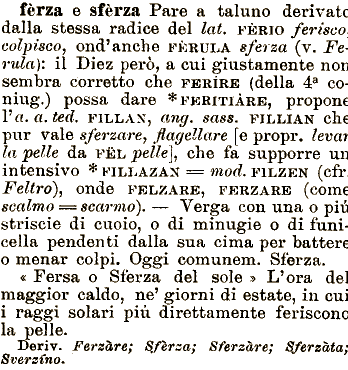 fèrza e sfèrza Pare a taluno derivato
dalla stessa radice del lat. FÈRIO ferisco,
colpisco, ond'anche FÈRULA sferza (v. Fe-
rula): il Diez però, a cui giustamente non
sembra corretto che FERÍRE (della 4ª co-
niug.) possa dare *FERITIÀRE, propone
l'a. a. ted. FILLAN, ang. sass. FILLIAN che
pur vale sferzare, flagellare [e propr. levar
la pelle da FËL pelle], che fa supporre un
intensivo *FILLAZAN = mod. FILZEN (cfr.
Feltro), onde FELZARE, FERZARE (come
scalmo = scarmo). — Verga con una o più
striscie di cuoio, o di minugie o di funi-
cella pendenti dalla sua cima per battere
o menar colpi. Oggi comunem. Sferza.
« Fersa o Sferza del sole » L'ora del
maggior caldo, ne' giorni di estate, in cui
i raggi solari più direttamente feriscono
la pelle.
Deriv. Ferzàre; Sfèrza; Sferzàre; Sferzàta;
Sverzíno.